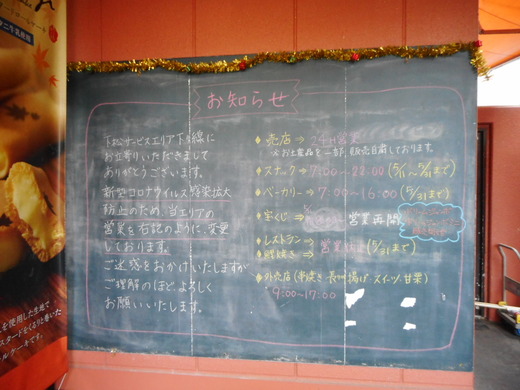 お知らせ
下松サービスエリア下り線に
お立寄りいただきまして
ありがとうございます。
新型コロナウイルス感染拡大
防止のため、当エリアの
営業を右記のように、変更
しております。
ご迷惑をおかけいたしますが
ご理解のほどよろしく
お願いいたします。
◆売店⇒24H営業
※お土産品を一部、販売自粛しております。
◆スナック⇒7:00~22:00(5/11~5/31まで)
◆ベーカリー⇒7:00~16:00(5/31まで)
◆宝くじ⇒ 営業再開
◆レストラン⇒
営業休止(5/31まで)
◆外売店(串焼き 長州揚げ スイーツ 甘栗)
9:00~17:00
を使用した生地で
スタードをくるりと巻いた
ルケーキです。